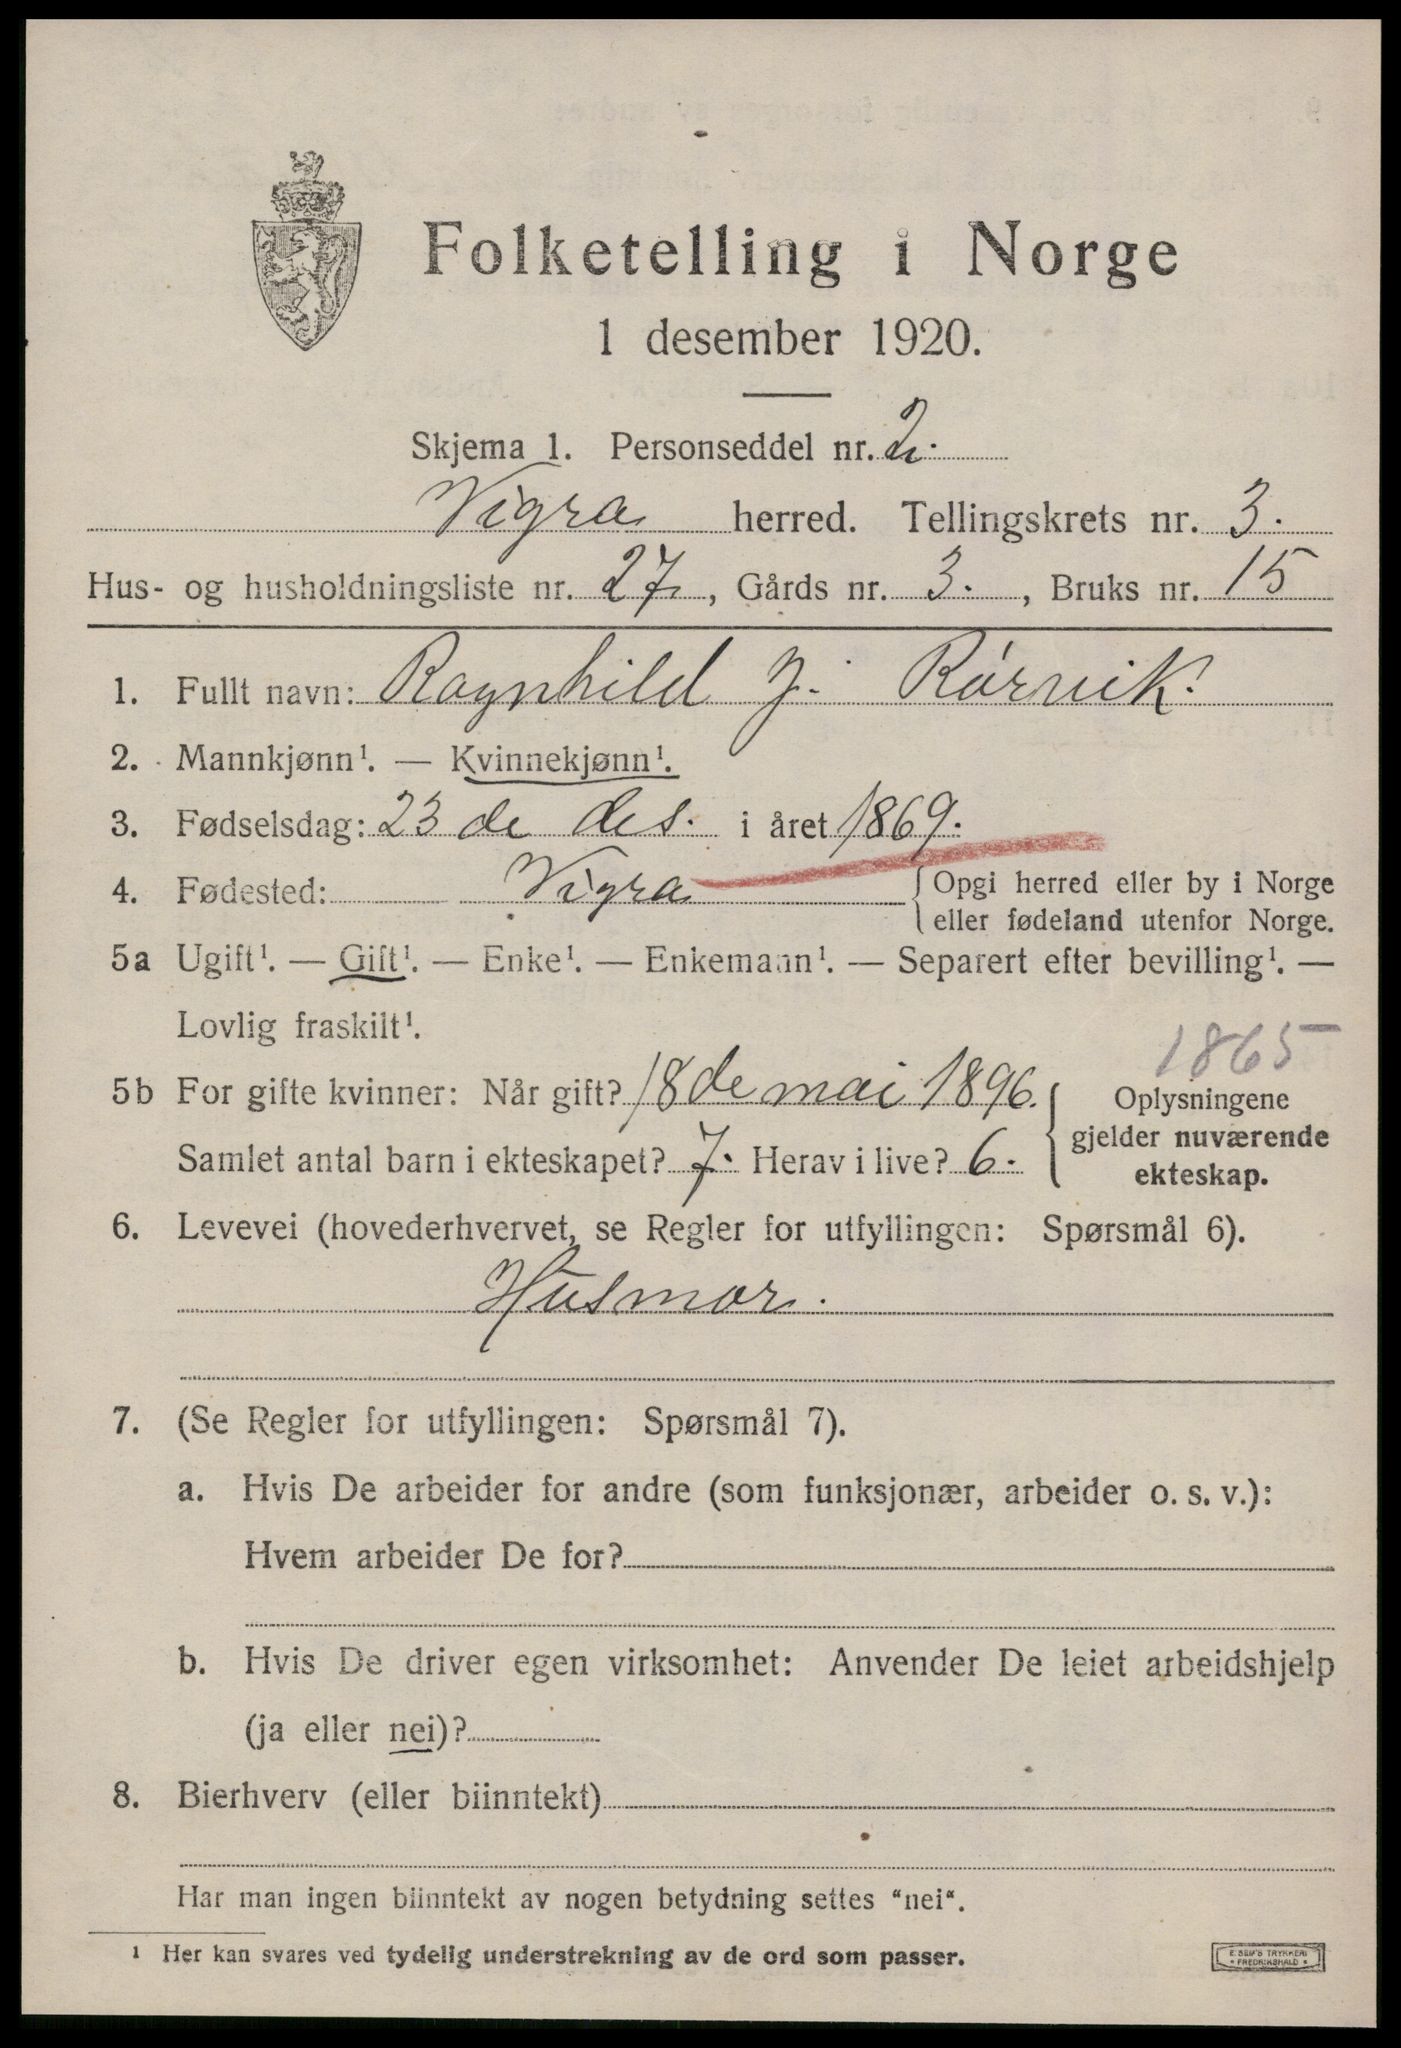 Folketelling i Norge
1 desember 1920.
Skjema 1. Personseddel nr. 2.
Vigra herred. Tellingskrets nr. 3.
Hus- og husholdningsliste nr. 27, Gårds nr. 3., Bruks nr. 15
1. Fullt navn: Ragnhild J. Rørvik.
2. Mannkjønn¹. — Kvinnekjønn¹.
3. Fødselsdag: 23 de des. i året 1869.
4. Fødested: Vigra { Opgi herred eller by i Norge
eller fødeland utenfor Norge.
5a Ugift¹. — Gift¹. — Enke¹. — Enkemann¹. — Separert efter bevilling¹. —
Lovlig fraskilt¹.
1865
5b For gifte kvinner: Når gift? 18 de mai 1896. { Oplysningene
gjelder nuværende
Samlet antal barn i ekteskapet? 7. Herav i live? 6.
ekteskap.
6. Levevei (hovederhvervet, se Regler for utfyllingen: Spørsmål 6).
Husmor.
7. (Se Regler for utfyllingen: Spørsmål 7).
a. Hvis De arbeider for andre (som funksjonær, arbeider o. s. v.):
Hvem arbeider De for?
b. Hvis De driver egen virksomhet: Anvender De leiet arbeidshjelp
(ja eller nei)?
8. Bierhverv (eller biinntekt)
Har man ingen biinntekt av nogen betydning settes "nei".
1 Her kan svares ved tydelig understrekning av de ord som passer.
E. SEM'S TRYKKERI
FREDRIKSHALD